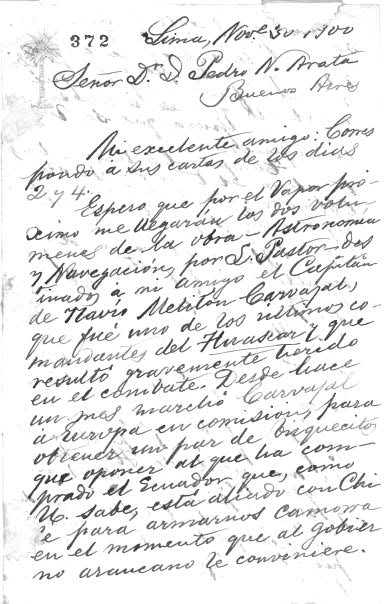 372
Lima, Nove 30 1900
Señor Dr. D. Pedro N. Arata
Buenos Aires
Mi excelente amigo: Corres
pondo á sus cartas de los dias
2 y 4.
Espero que por el vapor pró-
ximo me llegarán los dos volú-
menes de la obra - Astronomia
y Navegación, por L. Pastor - des
tinados á mi amigo el Capitán
de Navio Melitón Carvajal,
que fué uno de los últimos co-
mandantes del Huascar y que
resultó gravemente herido
en el combate. Desde hace
un mes marchó Carvajal
á Europa en comisión, para
obtener un par de buquecitos
que oponer al que ha com-
prado el Ecuador que, como
U. sabe, está aliado con Chi
le para armarnos camorra
en el momento que al gobier
no araucano le conviniere.